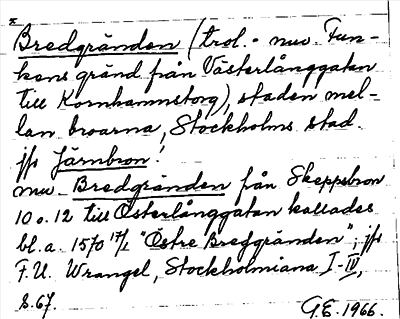 Bredgränden (trol. - nuv. Fun-
kens gränd från Västerlånggatan
till Kornhamnstorg), staden mel-
lan broarna, Stockholms stad.
jfr Järnbron!
nuv. Bredgränden från Skeppsbron
10 o. 12 till Österlånggatan kallades
bl. a. 1570 17/1 "Östre Bredgränden", jfr
F. U. Wrangel, Stockholmiana I-IV,
S. 67.
G.E. 1966.